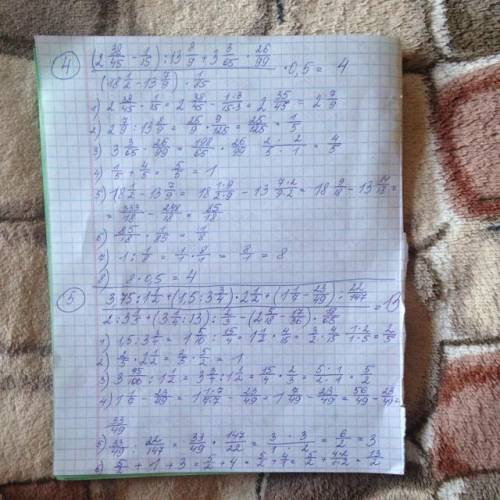 4) (2 38/45 - 1/15) : 13 8/9 + 3 3/65 · 26/99
(18 1/2 - 13 7/9) · 1/85 · 0,5 = 4
1) 2 38/45 - 1/15 = 2 38/45 - 1·3/15·3 = 2 35/45 = 2 7/9
2) 2 7/9 : 13 8/9 = 25/9 · 9/125 = 25/125 = 1/5
3) 3 3/65 · 26/99 = 198/65 · 26/99 = 2·2/5·1 = 4/5
4) 1/5 + 4/5 = 5/5 = 1
5) 18 1/2 - 13 7/9 = 18 1·9/2·9 - 13 7·2/9·2 = 18 9/18 - 13 14/18 =
= 333/18 - 248/18 = 85/18
6) 85/18 · 1/85 = 1/8
7) 1 : 1/8 = 1/1 · 8/1 = 8/1 = 8
8) 8 · 0,5 = 4
5) 3,75 : 1 1/2 + (1,5 : 3 3/4) · 2 1/2 + (1 1/7 - 23/49) : 22/147
2 : 3 1/5 + (3 1/4 : 13) : 2/3 + (2 5/18 - 17/36) · 18/65 = 13
1) 1,5 : 3 3/4 = 1 5/10 : 15/4 = 1 1/2 · 4/15 = 3/2 · 4/15 = 1·2/1·5 = 2/5
2) 2/5 · 2 1/2 = 2/5 · 5/2 = 1
3) 3 75/100 : 1 1/2 = 3 3/4 : 1 1/2 = 15/4 · 2/3 = 5·1/2·1 = 5/2
4) 1 1/7 - 23/49 = 1 1·7/7·7 - 23/49 = 1 7/49 - 23/49 = 56/49 - 23/49 =
33/49
5) 33/49 : 22/147 = 33/49 · 147/22 = 3·3/1·2 = 6/2 = 3
6) 5/2 + 1 + 3 = 5/2 + 4 = 5/2 + 4/1 = 5/2 + 4·2/1·2 = 13/2